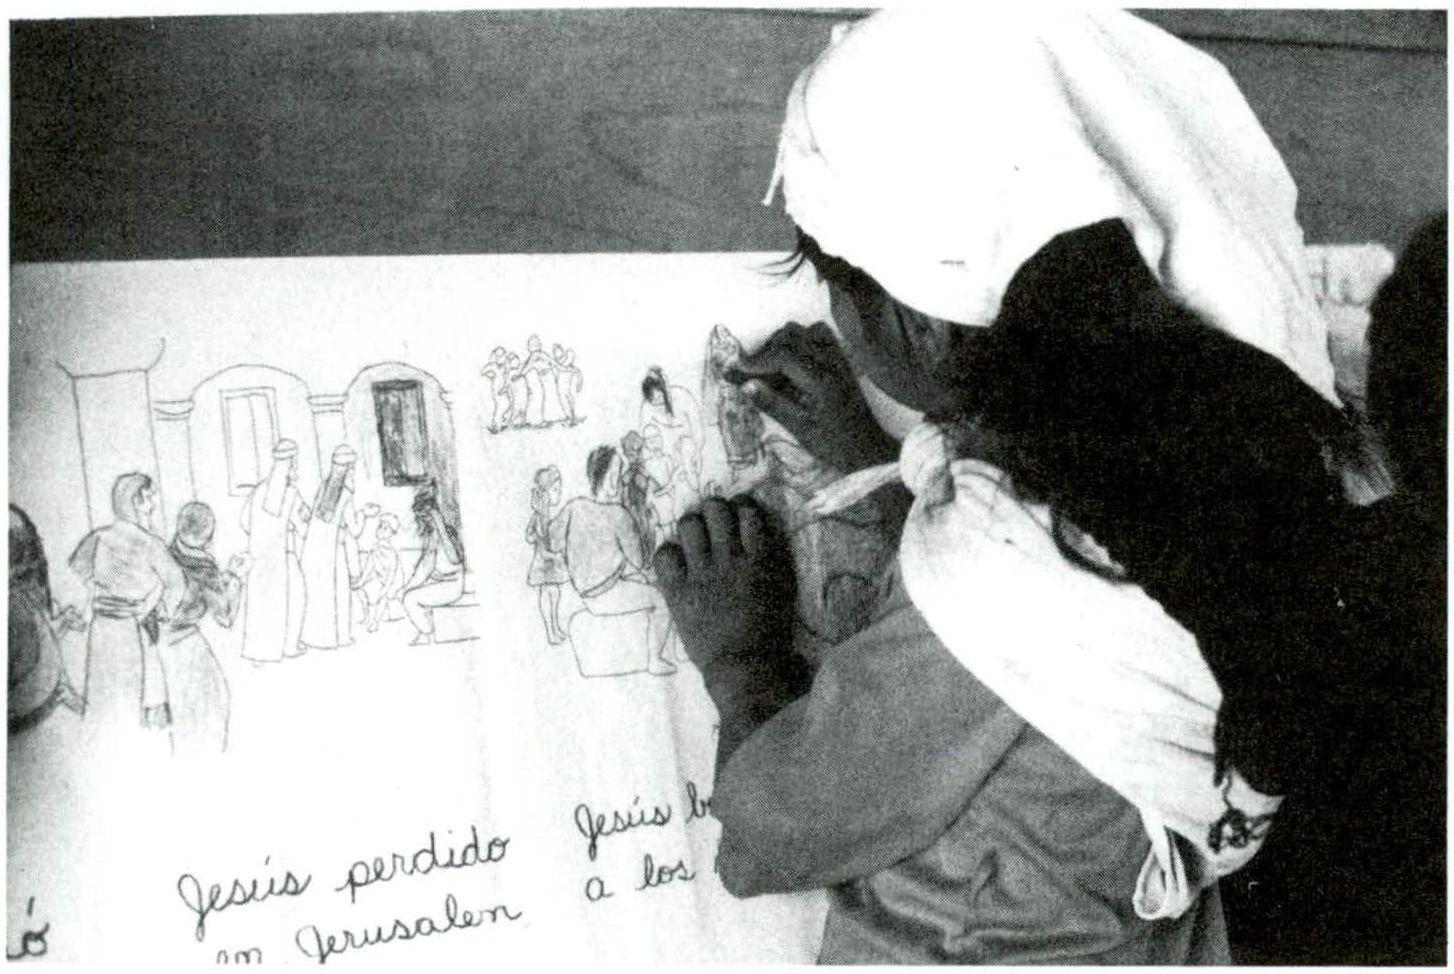 ó
Jesús perdido
en Jerusalen
Jesús
a los